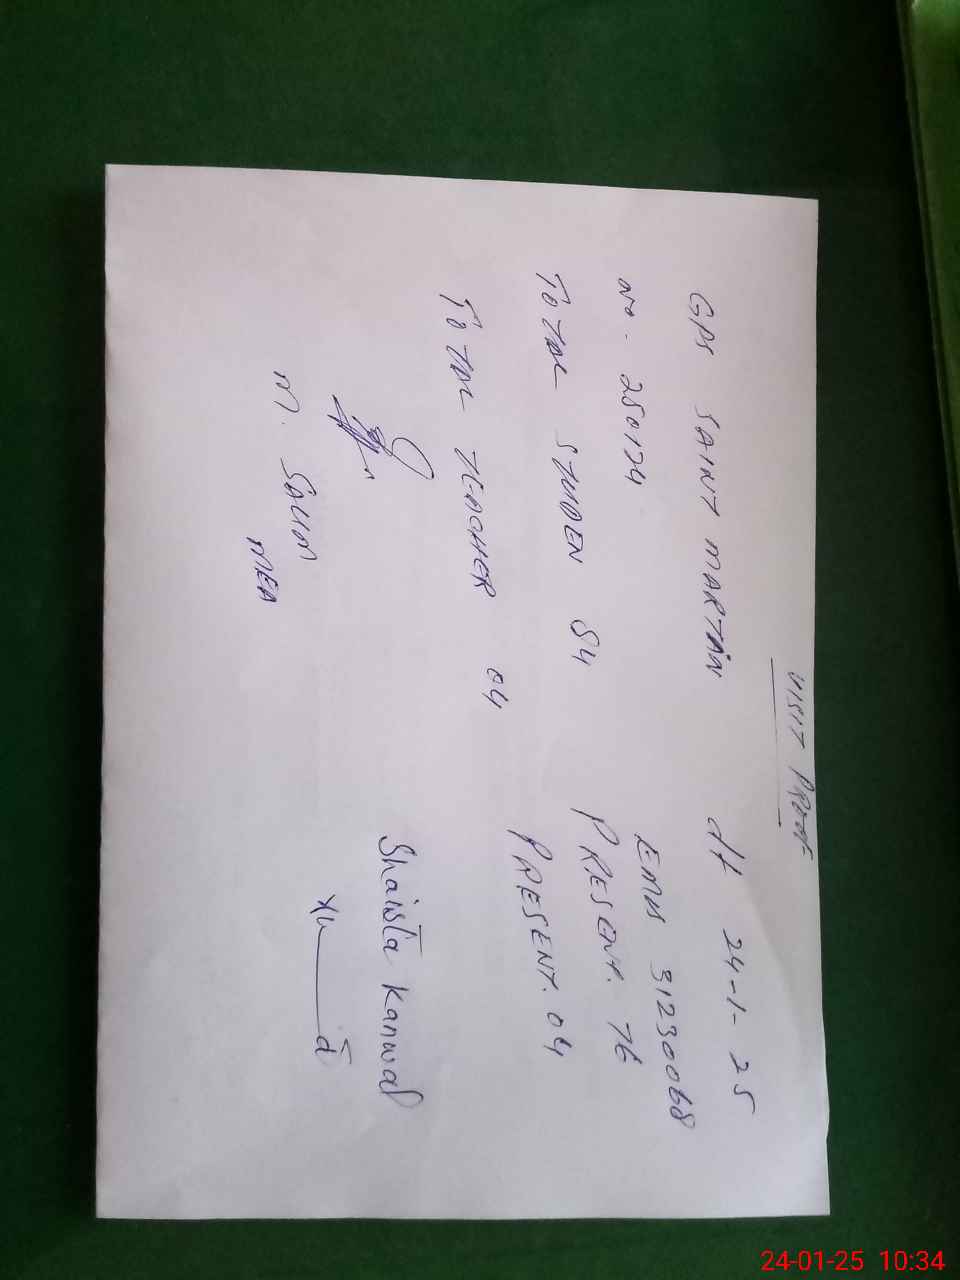 VISIT PROOF
GPS SAINT MARTAIN dt 24-1-25
no. 250174 EMIS 31230068
TOTAL STUDEN 84 PRESENT. 76
TOTAL TEACHER 04 PRESENT. 04
Shaista Kanwal
M. SALIM
MEA
24-01-25 10:34